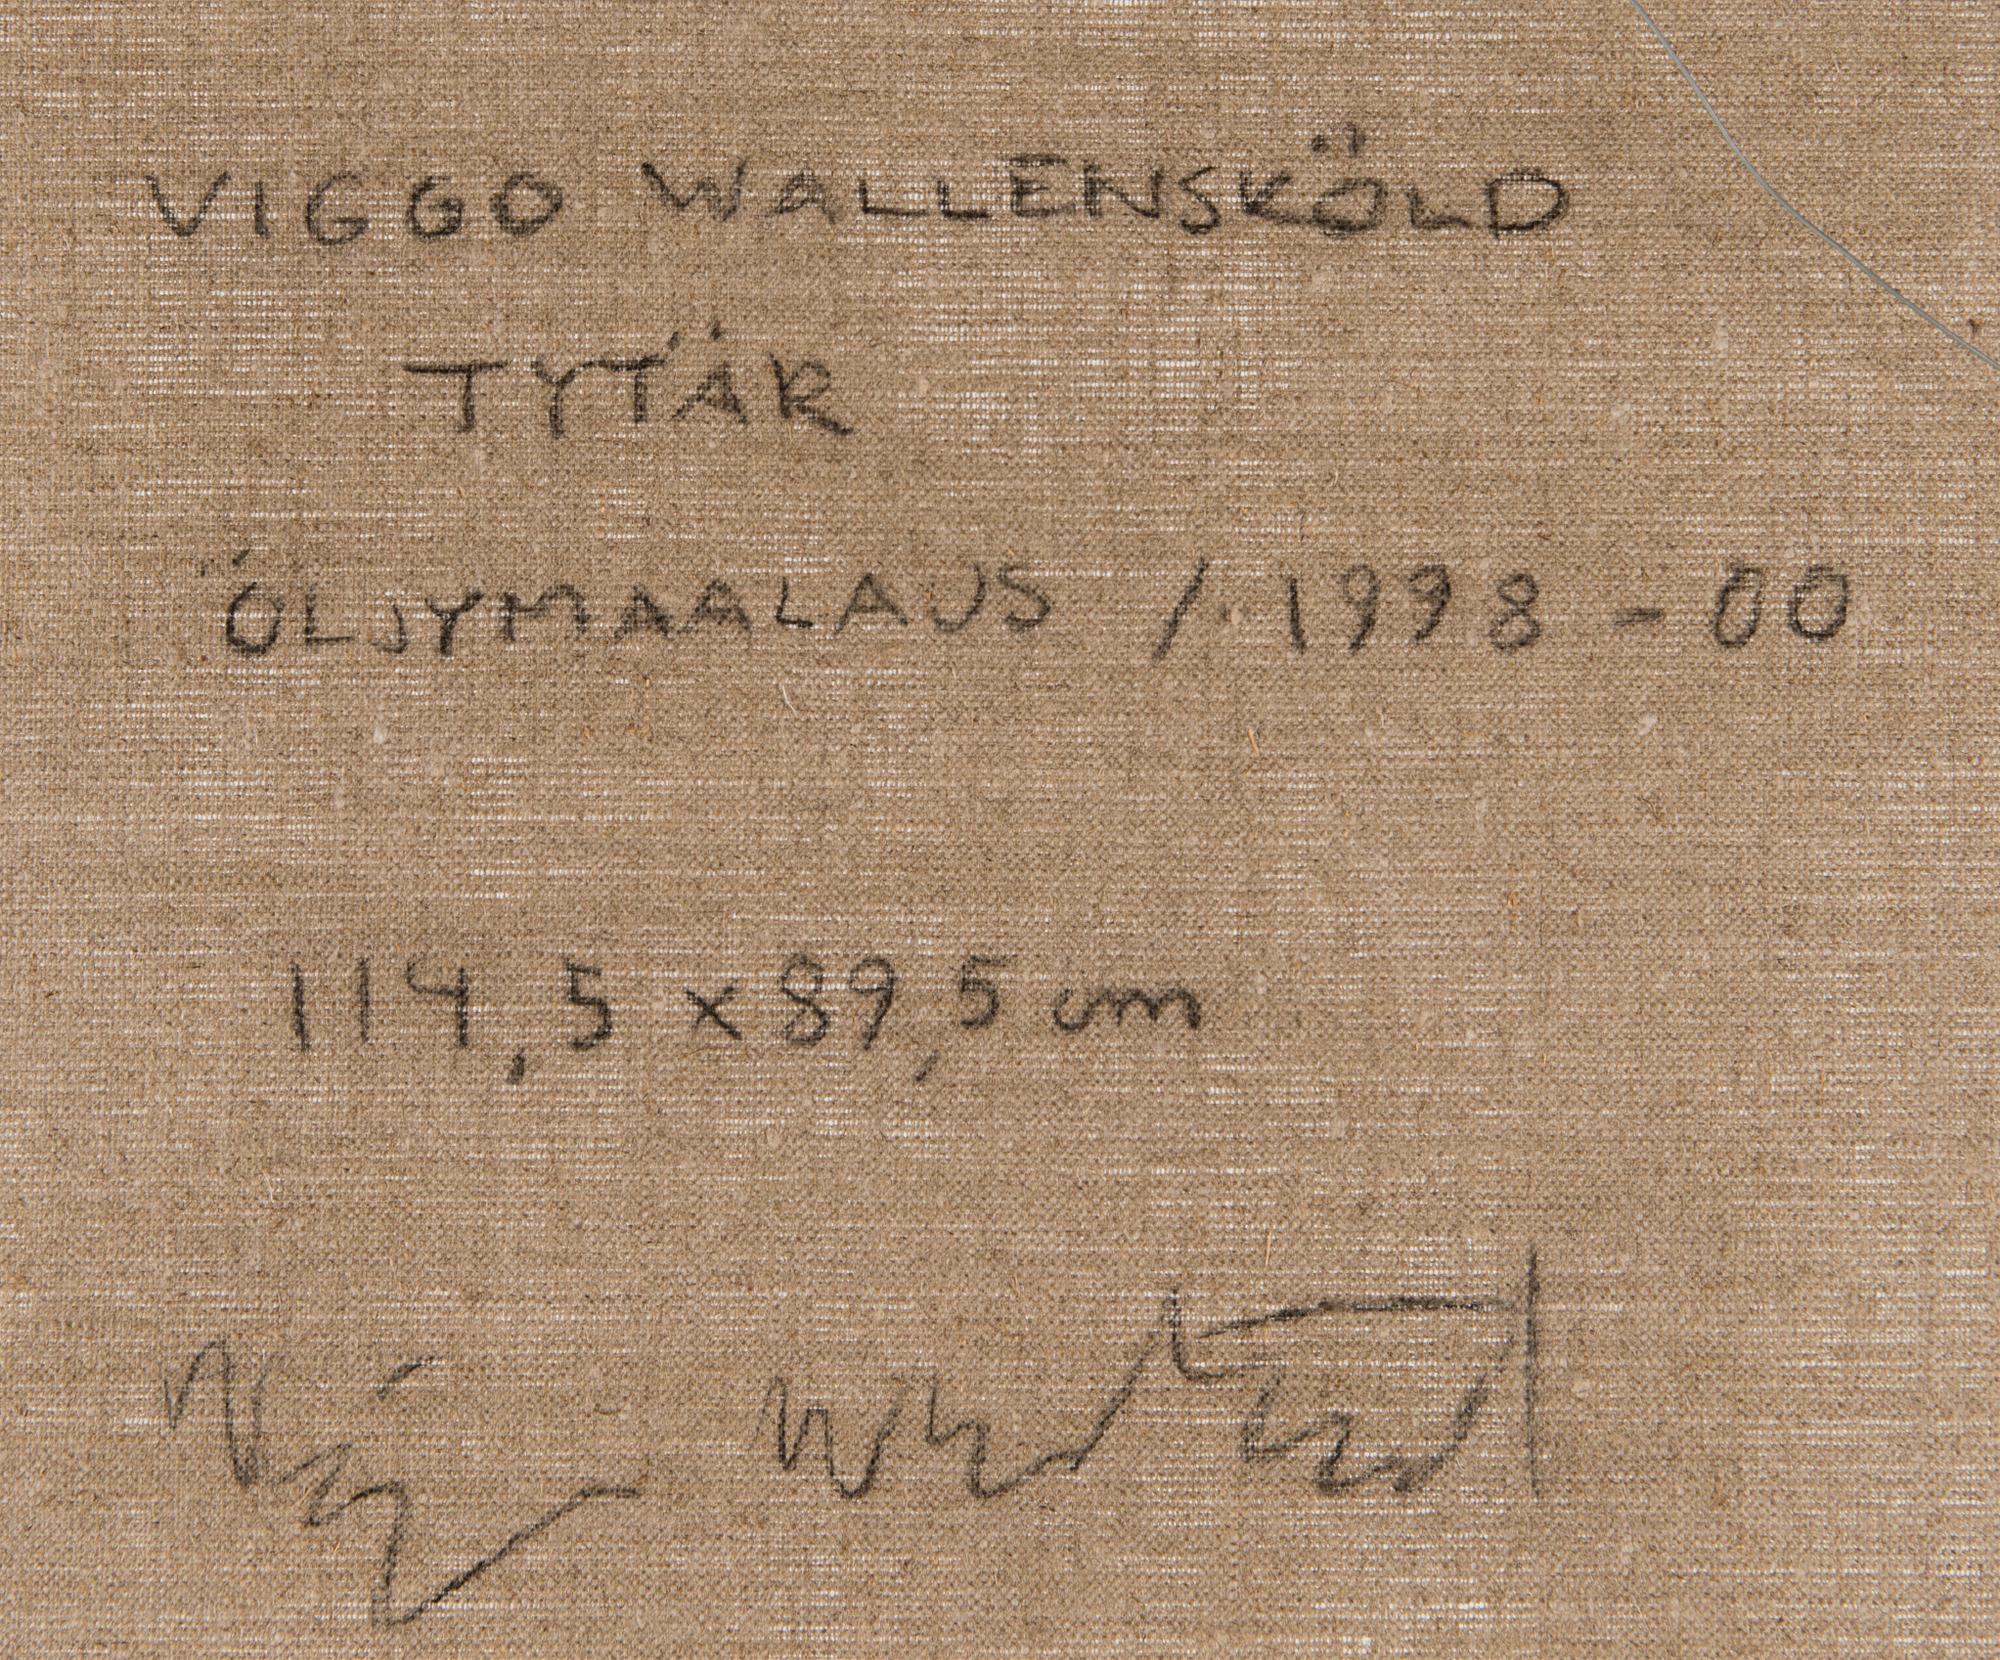 VIGGO WALLENSKÖLD
TYTÄR
ÖLJYMAALAUS / 1998 - 00
114,5 x 89,5 cm